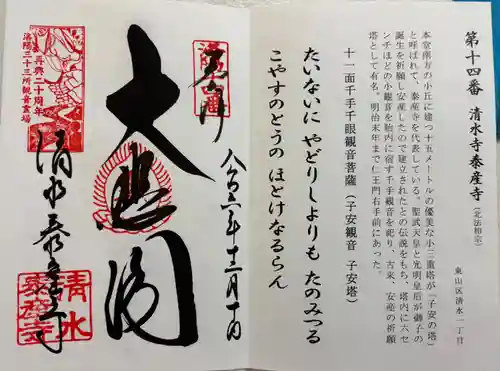 第十四番 清水寺泰産寺(北法相宗)
東山区清水一丁目
本堂南方の小丘に建つ十五メートルの優美な小三重塔が「子安の塔」
と呼ばれて、泰産寺を代表している。聖武天皇と光明皇后が御子の
誕生を祈願し安産したので建立されたとの伝説をもち、塔内に六セ
ンチほどの小観音を胎内に宿す千手観音を祀り、古来、安産の祈願
塔として有名。明治末年まで仁王門右手前にあった。
十一面千手千眼観音菩薩(子安観音 子安塔)
たいないに やどりしよりも たのみつる
こやすのとうの ほとけなるらん
大悲閣
清水泰産寺
再興二十周年
洛陽三十三所観音霊場
清水
泰産寺